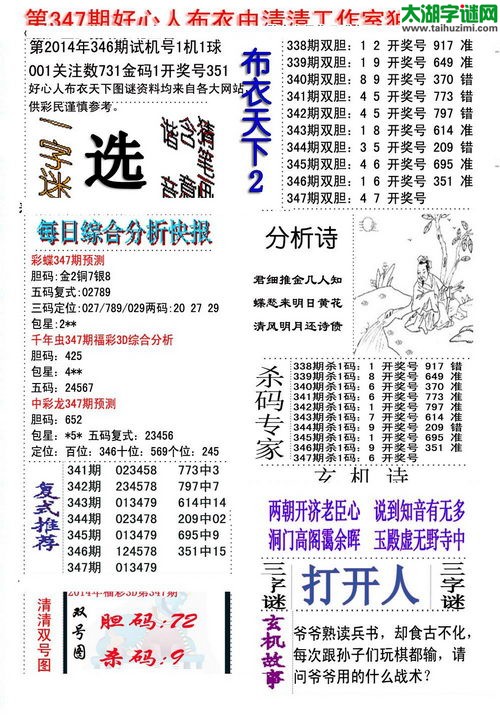 第347期好心人布衣由清清工作室
太湖字谜网
www.taihuzimi.com
第2014年346期试机号1机1球
001关注数731金码1开奖号351
好心人布衣天下图谜资料均来自各大网站,
供彩民谨慎参考。
一字迷
选
每日综合分析快报
彩蝶347期预测
胆码:金2铜7银8
五码复式:02789
三码定位:027/789/029两码:20 27 29
包星:2**
千年虫347期福彩3D综合分析
胆码: 425
包星: 4**
五码: 24567
中彩龙347期预测
胆码: 652
包星: *5* 五码复式: 23456
定位: 百位: 346十位: 569个位: 245
复式推荐
341期 023458 773中3
342期 234578 797中7
343期 013479 614中14
344期 023478 209中02
345期 013479 695中9
346期 124578 351中15
347期 013479
清清双号图
2014年福彩3D第347期
双号图
胆码:72
杀码:9
布衣天下2
338期双胆: 1 2 开奖号 917 错
339期双胆: 1 9 开奖号 649 准
340期双胆: 8 9 开奖号 370 错
341期双胆: 4 5 开奖号 773 错
342期双胆: 4 5 开奖号 797 错
343期双胆: 1 8 开奖号 614 准
344期双胆: 3 5 开奖号 209 错
345期双胆: 4 6 开奖号 695 准
346期双胆: 1 6 开奖号 351 准
347期双胆: 4 7 开奖号
分析诗
君细推金几人知
蝶愁来明日黄花
清风明月还诗债
杀码专家
338期杀1码: 1 开奖号 917 错
339期杀1码: 8 开奖号 649 准
340期杀1码: 6 开奖号 370 准
341期杀1码: 6 开奖号 773 准
342期杀1码: 1 开奖号 797 准
343期杀1码: 7 开奖号 614 准
344期杀1码: 3 开奖号 209 准
345期杀1码: 1 开奖号 695 准
346期杀1码: 9 开奖号 351 准
347期杀1码: 6 开奖号
玄机诗
两朝开济老臣心 说到知音有无多
洞门高阁霭余晖 玉殿虚无野寺中
三字谜
打开人
三字谜
玄机故事
爷爷熟读兵书, 却食古不化,
每次跟孙子们玩棋都输, 请
问爷爷用的什么战术?